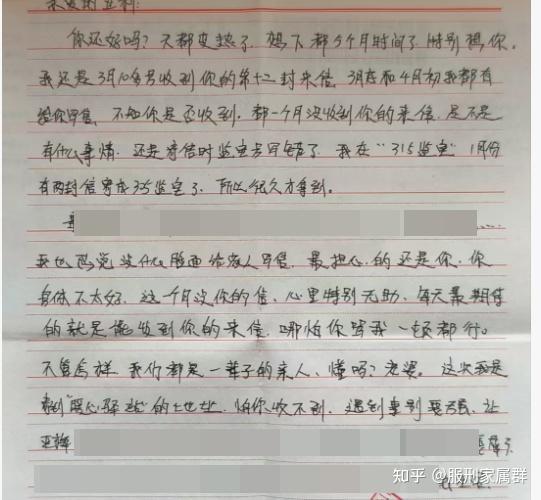 你还好吗？天都变热了，想下都5个月时间了，特别想你。
我还是3月10多号收到你的第十二封来信，3月底和4月初我都有
给你写信，不知你是否收到，都一个月没收到你的来信，是不是
有什么事情，还是寄信时监室号写错了，我在"315监室"1月份
有两封信写成35监室了，所以很久才拿到。
我也感觉没什么脸面给家人写信，最担心的还是你，你
身体不太好，这一个月没你的信，心里特别无助，每天最期待
的就是能收到你的来信，哪怕你骂我一顿都行。
不管怎样，我们都是一辈子的亲人，懂吗？老婆。这次我是
的地址，怕你收不到，遇到事别要强，让
知乎 @服刑家属群